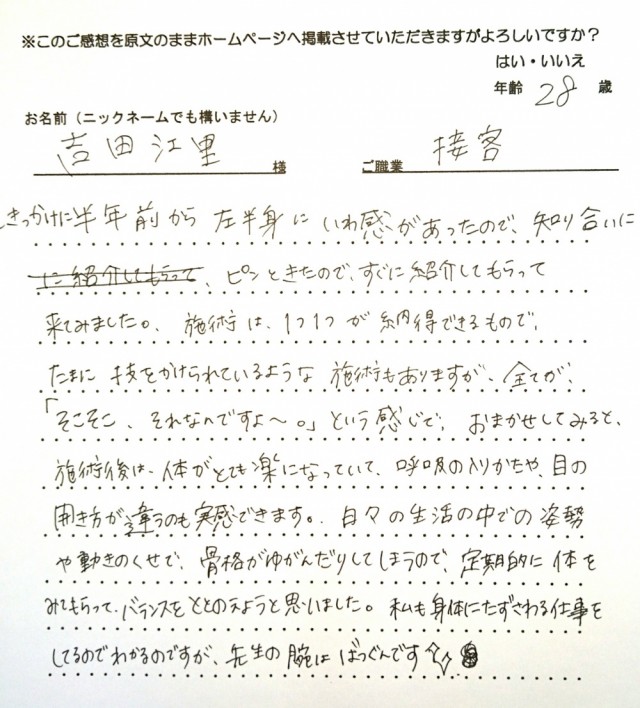 ※このご感想を原文のままホームページへ掲載させていただきますがよろしいですか？
はい・いいえ
年齢 28 歳
お名前（ニックネームでも構いません）
吉田江里 様 ご職業 接客
きっかけに半年前から左半身にいわ感があったので、知り合いに
に紹介してもらって、ピンときたので、すぐに紹介してもらって
来てみました。施術は、1つ1つが納得できるもので、
たまに技をかけられているような施術もありますが、全てが、
「そこそこ、それなんですよ〜。」という感じで、おまかせしてみると、
施術後は、体がとても楽になっていて、呼吸の入りかたや、目の
開き方が違うのも実感できます。日々の生活の中での姿勢
や動きのくせで、骨格がゆがんだりしてしまうので、定期的に体を
みてもらって、バランスをととのえようと思いました。私も身体にたずさわる仕事を
してるのでわかるのですが、先生の腕はばつぐんです